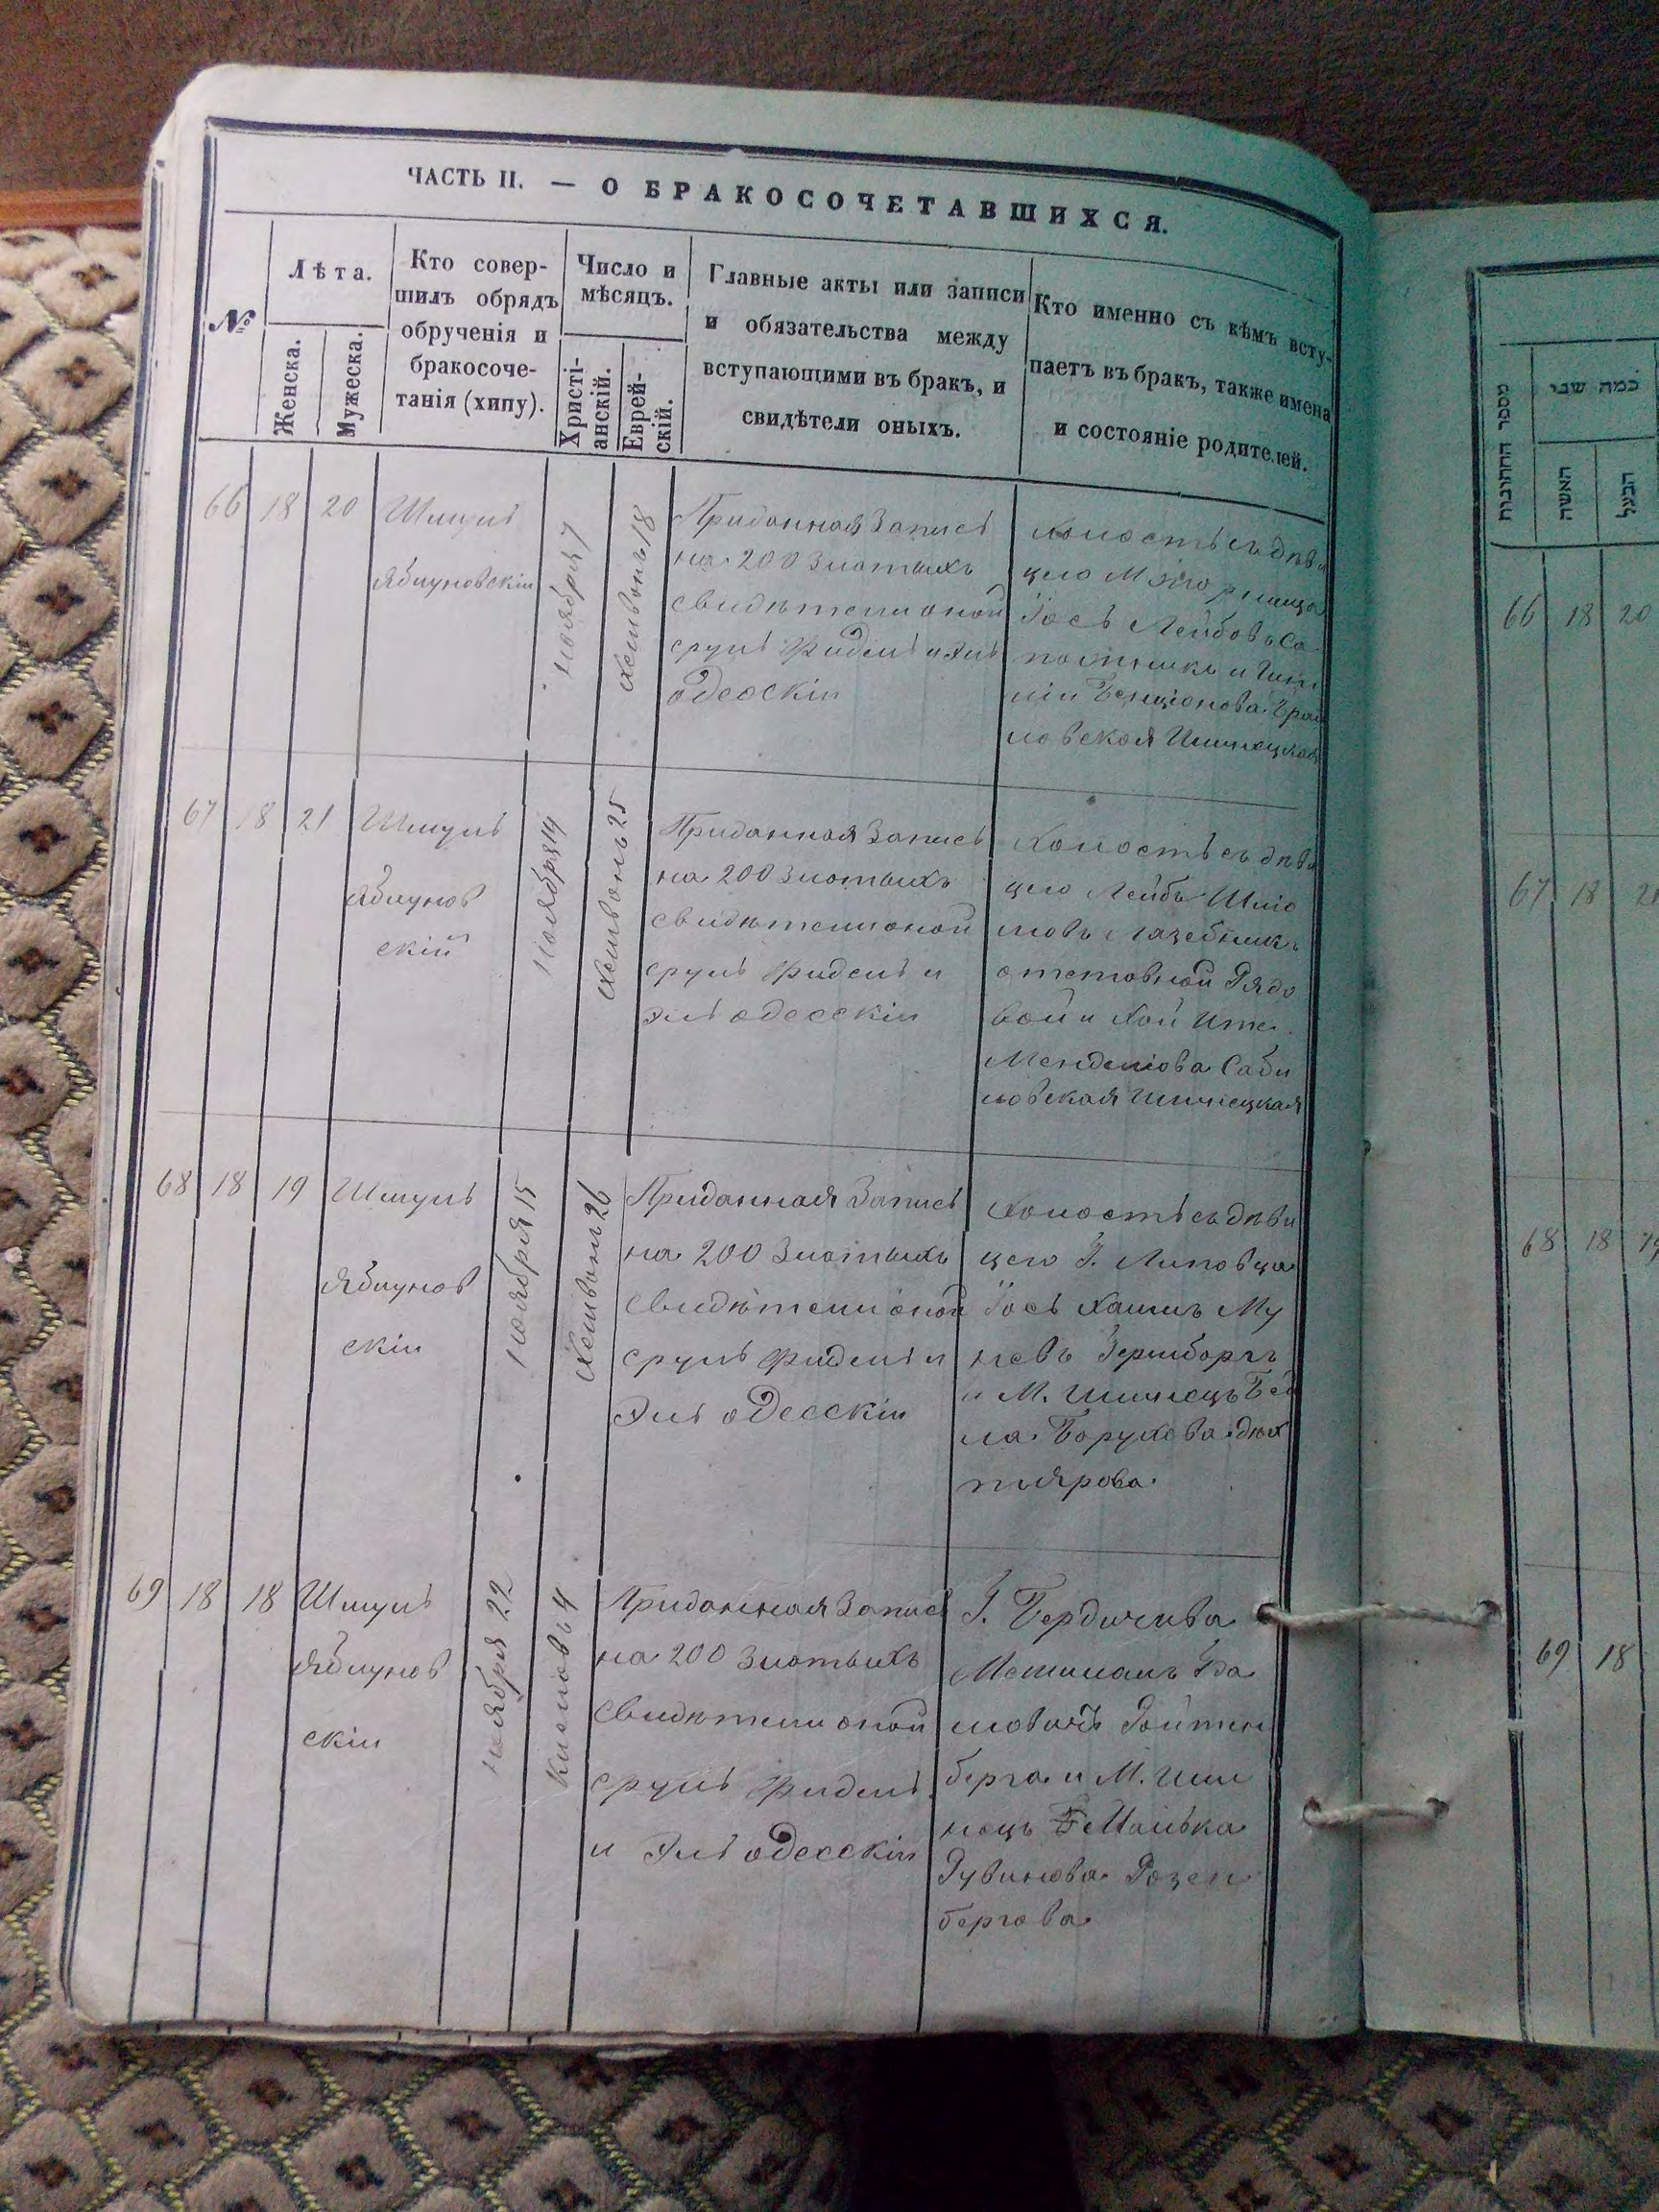 ЧАСТЬ II. — О БРАКОСОЧЕТАВШИХСЯ.
№
Лѣта.
Женска.
Мужеска.
Кто совер-
шилъ обрядъ
обрученія и
бракосоче-
танія (хипу).
Число и
мѣсяцъ.
Христі-
анскій.
Еврей-
скій.
Главные акты или записи
и обязательства между
вступающими въ бракъ, и
свидѣтели оныхъ.
Кто именно съ кѣмъ всту-
паетъ въ бракъ, также имена
и состояніе родителей.
66 18 20
Шмуль
Яблуновскіи
ноября 7
Хешвонъ 18
Приданная Запись
на 200 Злотыхъ
свидѣтели оной
сруль Фидель и Эль
одесскіи
холостъ съ дѣви
цею
Іось Лейбовъ Са
пожникъ и
Бенціонова
ловская Илинецкая
67 18 21
Шмуль
Яблунов
скій
ноября 14
Хешвонъ 25
Приданная Запись
на 200 Злотыхъ
свидѣтели оной
сруль Фидель и
Эль одесскіи
Холостъ съ дѣви
цею Лейбъ Шліо
мовъ Лазебникъ
отставной Рядо
вой и Хой Ите
Менделіова Саби
ловская Илинецкая
68 18 19
Шмуль
Яблунов
скіи
ноября 15
Хешвонъ 26
Приданная Запись
на 200 Злотыхъ
Свидѣтели оной
сруль Фидель и
Эль одесскіи
Холостъ съ дѣви
цею Г. Липовца
Іось Хаимъ Му
невъ
и М. Илинецъ Бей
ла Борухова Дюх
тярова
69 18 18
Шмуль
Яблунов
скіи
ноября 22
Кислов 4
Приданная Запись
на 200 Злотыхъ
Свидѣтели оной
сруль Фидель
и Эль одесскіи
Г. Бердичива
Мешиламъ
Ройтен
берга и М. Или
нецъ Малька
Рувинова Розен
бергова
מספר החתונות
כמה שני
האשה
הבעל
66 18 20
67 18 21
68 18 19
69 18